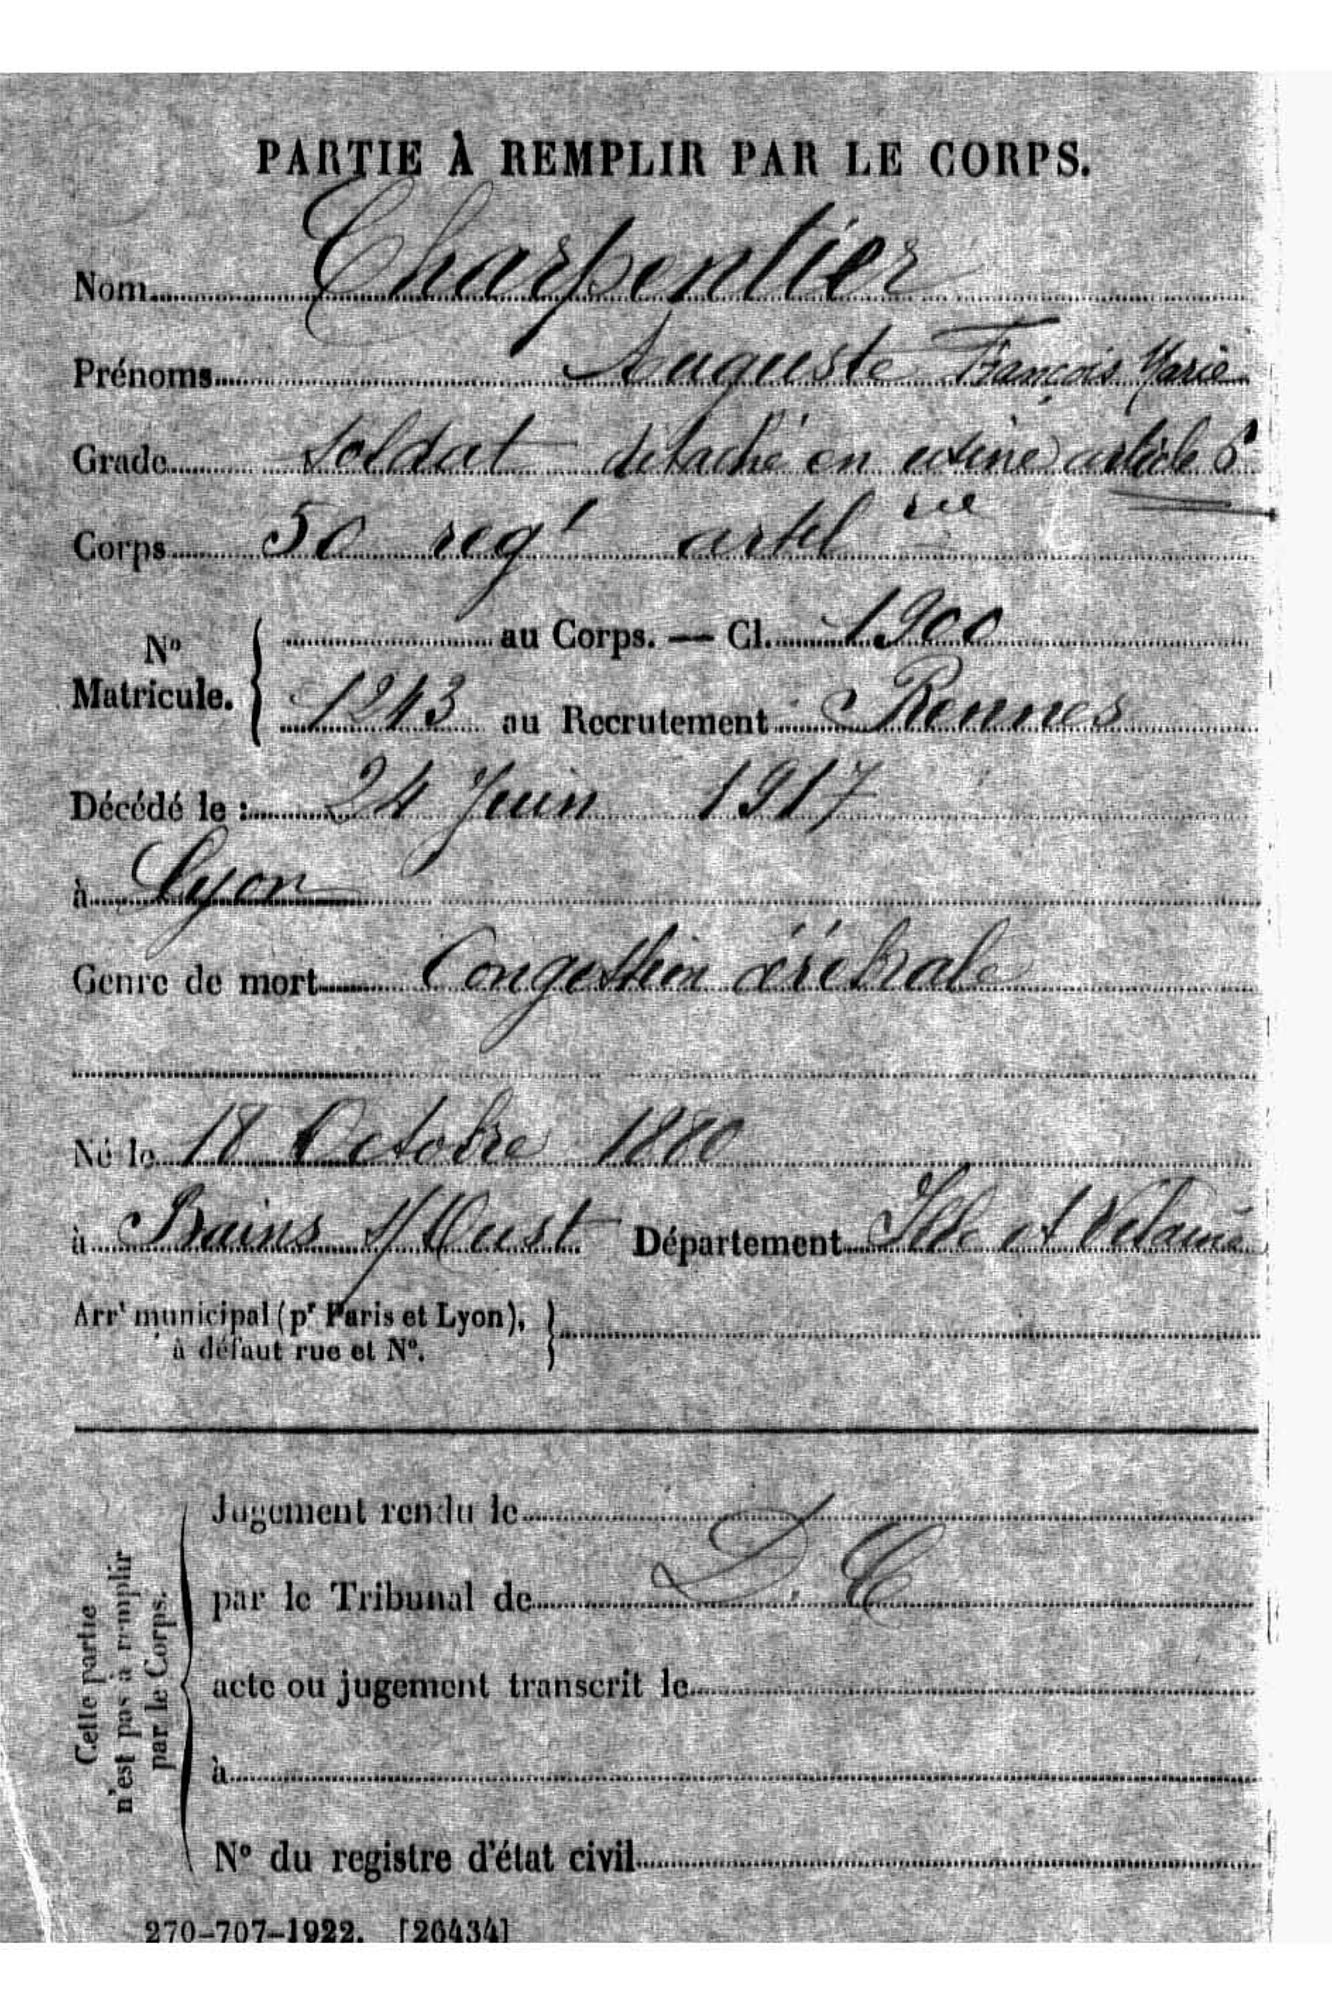 PARTIE À REMPLIR PAR LE CORPS.
Nom Charpentier
Prénoms Auguste François Marie
Grade soldat détaché en usine article 6
Corps 50 regt artel rie
No Matricule. { au Corps. — Cl. 1900
1243 au Recrutement Rennes
Décédé le : 24 Juin 1917
à Lyon
Genre de mort Congestion cérébrale
Né le 18 Octobre 1880
à Bains s/Oust Département Ille et Vilaine
Arrt municipal (pr Paris et Lyon), }
à défaut rue et No.
Cette partie
n'est pas à remplir
par le Corps.
Jugement rendu le
par le Tribunal de D. C
acte ou jugement transcrit le
à
No du registre d'état civil
270-707-1922. [26434]